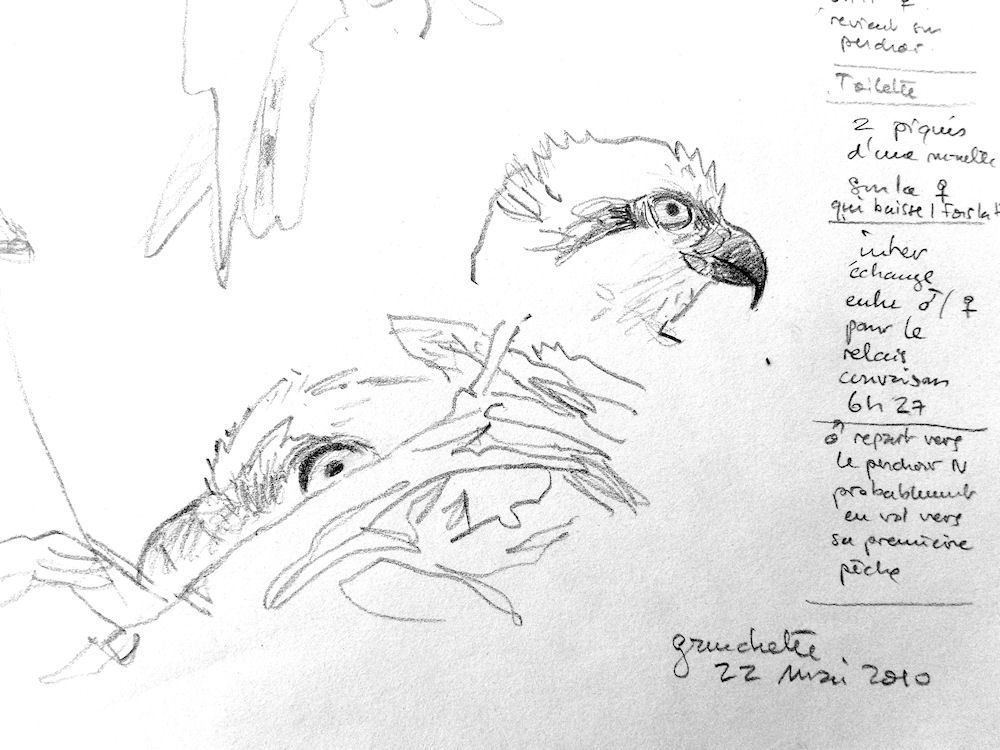 ♀
revient sur
perchoir.
Toilette
2 piqués
d'une mouette
sur la ♀
qui baisse 1 fois la t
inter
échange
entre ♂/♀
pour le
relais
couvaison
6h 27
♂ repart vers
le perchoir N
probablement
en vol vers
sa première
pêche
22 mai 2010